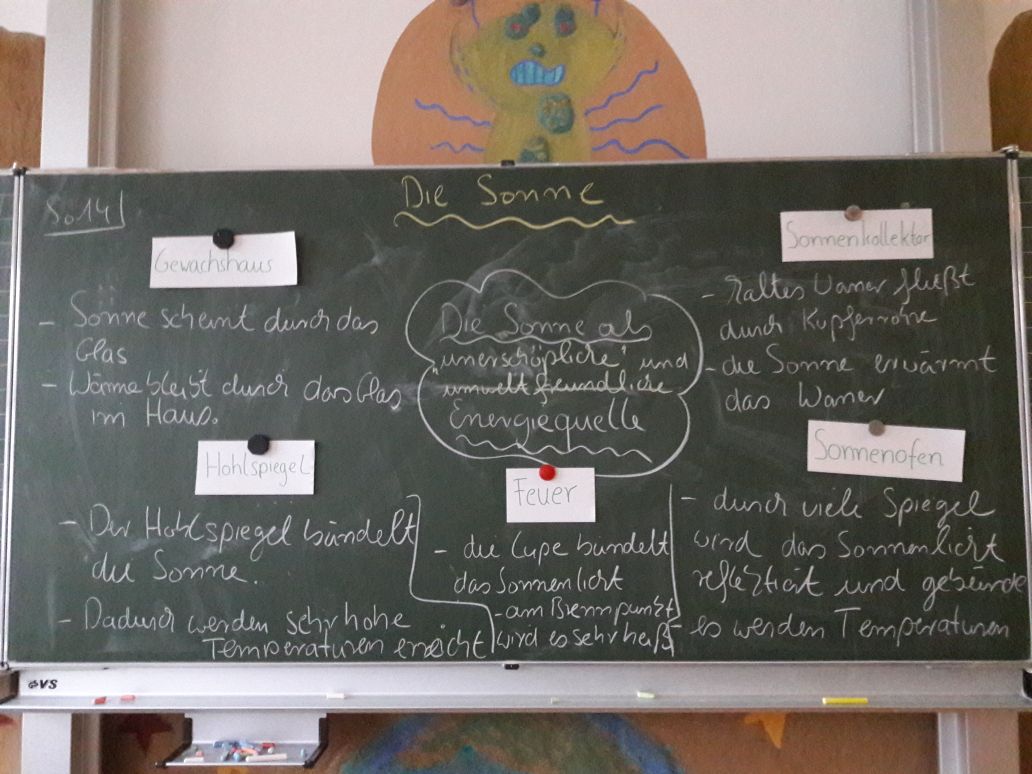 Die Sonne
So 14
Gewächshaus
- Sonne scheint durch das
Glas
- Wärme bleibt durch das Glas
im Haus.
Die Sonne als
"unerschöpfliche" und
umweltfreundliche
Energiequelle
Sonnenkollektor
- Kaltes Wasser fließt
durch Kupferrohre
- die Sonne erwärmt
das Wasser
Hohlspiegel
- Der Hohlspiegel bündelt
die Sonne.
- Dadurch werden sehr hohe
Temperaturen erreicht
Feuer
- die Lupe bündelt
das Sonnenlicht
- am Brennpunkt
wird es sehr heiß
Sonnenofen
- durch viele Spiegel
wird das Sonnenlicht
reflektiert und gebünde
- es werden Temperaturen
VS